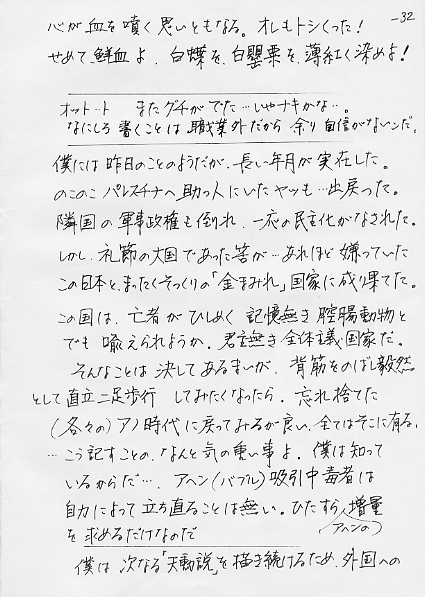 -32
心が血を噴く思いともなる。オレもトシくった!
せめて鮮血よ、白蝶を、白罌粟を、薄紅く染めよ!
オット‥ト　またグチがでた…しゃナキかな…。
なにしろ書くことは職業外だから余り自信がないンだ。
僕には昨日のことのようだが、長い年月が実在した。
のこのこパレスチナへ助っ人にいたヤツも…出戻った。
隣国の軍事政権も倒れ、一応の民主化がなされた。
しかし、礼節の大国であった筈が…あれほど嫌っていた
この日本と、まったくそっくりの「金まみれ」国家に成り果てた。
この国は、亡者がひしめく記憶無き腔腸動物と
でも喩えられようか。君主無き全体主義国家だ。
そんなことは決してあるまいが、背筋をのばし毅然
として直立二足歩行してみたくなったら、忘れ捨てた
(各々の)アノ時代に戻ってみるが良い、全てはそこに有る。
…こう記すことの、なんと気の重い事よ。僕は知って
いるからだ…。アヘン(バブル)吸引中毒者は
自力によって立ち直ることは無い。ひたすら(アヘンの)増量
を求めるだけなのだ
僕は次なる「天動説」を描き続けるため、外国への